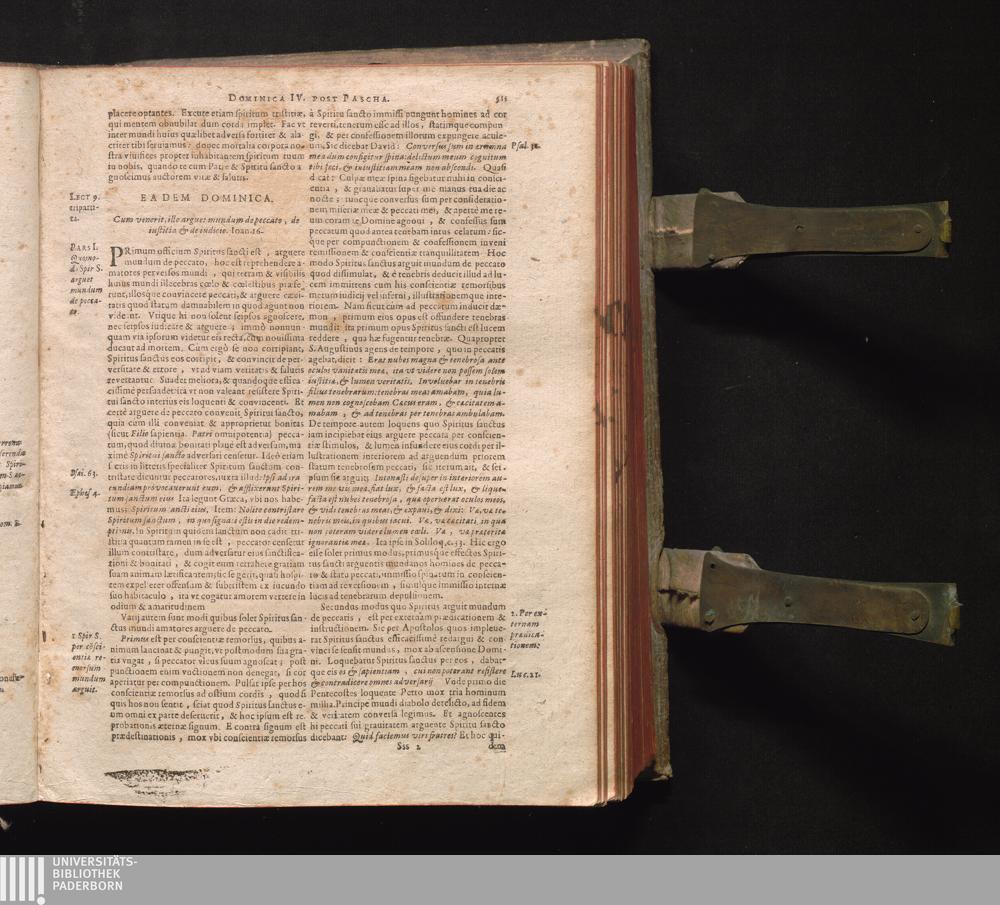 DOMINICA IV. POST PASCHA.
placere optantes. Excute etiam spiritum tristitiæ,
qui mentem obnubilat dum corda implet. Fac vt
inter mundi huius quælibet adversa fortiter & ala-
criter tibi seruiamus: donec mortalia corpora no-
stra viuifices propter inhabitantem spiritum tuum
in nobis, quando te cum Patre & Spiritu sancto a
gnoscimus auctorem vitæ & salutis.
LECT 9.
triparti-
ta.
EADEM DOMINICA.
Cum venerit, ille arguet mundum de peccato, de
iustitia & de iudicio. Ioan. 16.
PARS I.
Quomo-
dò Spir S.
arguet
mundum
de pecca-
to.
PRimum officium Spiritus sancti est, arguere
mundum de peccato, hoc est reprehendere a-
matores perversos mundi, qui terram & visibilis
huius mundi illecebras cœlo & cœlestibus præfe-
runt, illosque convincere peccati, & arguere cæci-
tatis quod statum damnabilem in quo agunt non
vident. Vtique hi non solent seipsos agnoscere,
nec seipsos iudicare & arguere; immò nonnun-
quam via ipsorum videtur eis recta, cum nouissima
ducant ad mortem. Cum ergò se non corripiant,
Spiritus sanctus eos corripit, & convincit de per-
versitate & errore, vt ad viam veritatis & salutis
revertantur. Suadet meliora, & quandoque effica-
cissimè persuadet ita vt non valeant resistere Spiri-
tui sancto interius eis loquenti & convincenti. Et
certè arguere de peccato convenit Spiritui sancto,
quia cum illi conveniat & approprietur bonitas
(sicut Filio sapientia. Patri omnipotentia) pecca-
tum, quod diuinæ bonitati planè est adversum, ma-
ximè Spiritui sancto adversari censetur. Ideò etiam
sacris in litteris specialiter Spiritum sanctum con-
tristare dicuntur peccatores, iuxta illud: Ipsi ad ira
Psal. 63.
cundiam provocauerunt eum, & afflixerunt Spiri-
Ephes 4.
tum sanctum eius Ita legunt Græca, vbi nos habe-
mus: Spiritum sancti eius. Item: Nolite contristare
Spiritum sanctum, in quo signati estis in die redem-
ptionis. In Spiritum quidem sanctum non cadit tri-
stitia quantum tamen in se est, peccator censetur
illum contristare, dum adversatur eius sanctifica-
tioni & bonitati, & cogit eum retrahere gratiam
suam animam lætificantem; sic se gerit, quasi hospi-
tem expelleret offensum & subtristem ex iucundo
suo habitaculo, ita vt cogatur amorem vertere in
odium & amaritudinem
Varij autem sunt modi quibus solet Spiritus san-
ctus mundi amatores arguere de peccato.
1 Spir S.
per cōsci-
entiæ re-
morsum
mundum
arguit.
Primus est per conscientiæ remorsus, quibus a-
nimum lancinat & pungit, vt postmodum sua gra-
tia vngat, si peccator vlcus suum agnoscat; post
punctionem enim vnctionem non denegat, si cor
aperiatur per compunctionem. Pulsat ipse per hos
conscientiæ remorsus ad ostium cordis, quod si
quis hos non sentit, sciat quod Spiritus sanctus e-
um omni ex parte deseruerit, & hoc ipsum est re-
probationis æternæ signum. E contra signum est
prædestinationis, mox vbi conscientiæ remorsus
à Spiritu sancto immissi pungunt homines ad cor
reverti, tenerum esse ad illos, statimque compun-
gi, & per confessionem illorum expungere acule-
um. Sic dicebat David: Conversus sum in ærumna
Psal. 31.
mea dum configitur spina: delictum meum cognitum
tibi feci, & iniustitiam meam non abscondi. Quasi
dicat: Culpæ meæ spina figebatur mihi in consci-
entia, & granabatur super me manus tua die ac
nocte; tuncque conversus sum per consideratio-
nem miseriæ meæ & peccati mei, & apertè me re-
um coram te Domine agnoui, & confessus sum
peccatum quod antea tenebam intus celatum: sic-
que per compunctionem & confessionem inveni
remissionem & conscientiæ tranquillitatem. Hoc
modo Spiritus sanctus arguit mundum de peccato
quod dissimulat, & è tenebris deducit illud ad lu-
cem immittens cum his conscientiæ remorsibus
metum iudicij vel inferni, illustrationemque inte-
riorem. Nam sicut cùm ad peccatum inducit dæ-
mon, primum eius opus est offundere tenebras
mundi: ita primum opus Spiritus sancti est lucem
reddere, qua hæ fugentur tenebræ. Quapropter
S. Augustinus agens de tempore, quo in peccatis
agebat, dicit: Erat nubes magna & tenebrosa ante
oculos vanitatis mea, ita vt videre non possem solem
iustitiæ, & lumen veritatis. Involuebar in tenebris
filius tenebrarum: tenebras meas amabam, quia lu-
men non cognoscebam Cæcus eram, & cæcitatem a-
mabam, & ad tenebras per tenebras ambulabam.
De tempore autem loquens quo Spiritus sanctus
iam incipiebat eius arguere peccata per conscien-
tiæ stimulos, & lumen infundere eius cordi per il-
lustrationem interiorem ad arguendum priorem
statum tenebrosem peccati, sic iterum ait, & sei-
psum sic arguit. Intonasti desuper in interiorem au-
rem meam vis mea, fiat lux, & facta est lux, & lique-
facta est nubes tenebrosa, qua operuerat oculos meos,
& vidi tenebras meas, & expaui, & dixi: Væ, væ te-
nebris meis, in quibus iacui. Væ, væ cæcitati, in qua
non poteram videre lumen cœli. Væ, væ præteritæ
ignorantiæ meæ. Ita ipse in Soliloq. c. 33. Hic ergo
esse solet primus modus, primusque effectus Spiri-
tus sancti arguentis mundanos homines de pecca-
to & statu peccati, immissio spinatum in conscien-
tiam ad revertendum, simulque immissio internæ
lucis ad tenebrarum depulsionem.
2. Per ex-
ternam
prædica-
tionem.
Secundus modus quo Spiritus arguit mundum
de peccatis, est per externam prædicationem &
instructionem. Sic per Apostolos quos impleue-
rat Spiritus sanctus efficacissimè redargui & con-
vinci se sensit mundus, mox ab ascensione Domi-
ni. Loquebatur Spiritus sanctus per eos, dabat-
que eis os & sapientiam, cui non poterant resistere
Luc. 21.
& contradicere omnes adversarij Vnde primo die
Pentecostes loquente Petro mox tria hominum
millia. Principe mundi diabolo derelicto, ad fidem
& veritatem conversa legimus. Et agnoscentes
hi peccati sui grauitatem arguente Spiritu sancto
dicebant: Quid faciemus viri fratres? Et hoc qui-
Sss 2
dem
UNIVERSITÄTS-
BIBLIOTHEK
PADERBORN